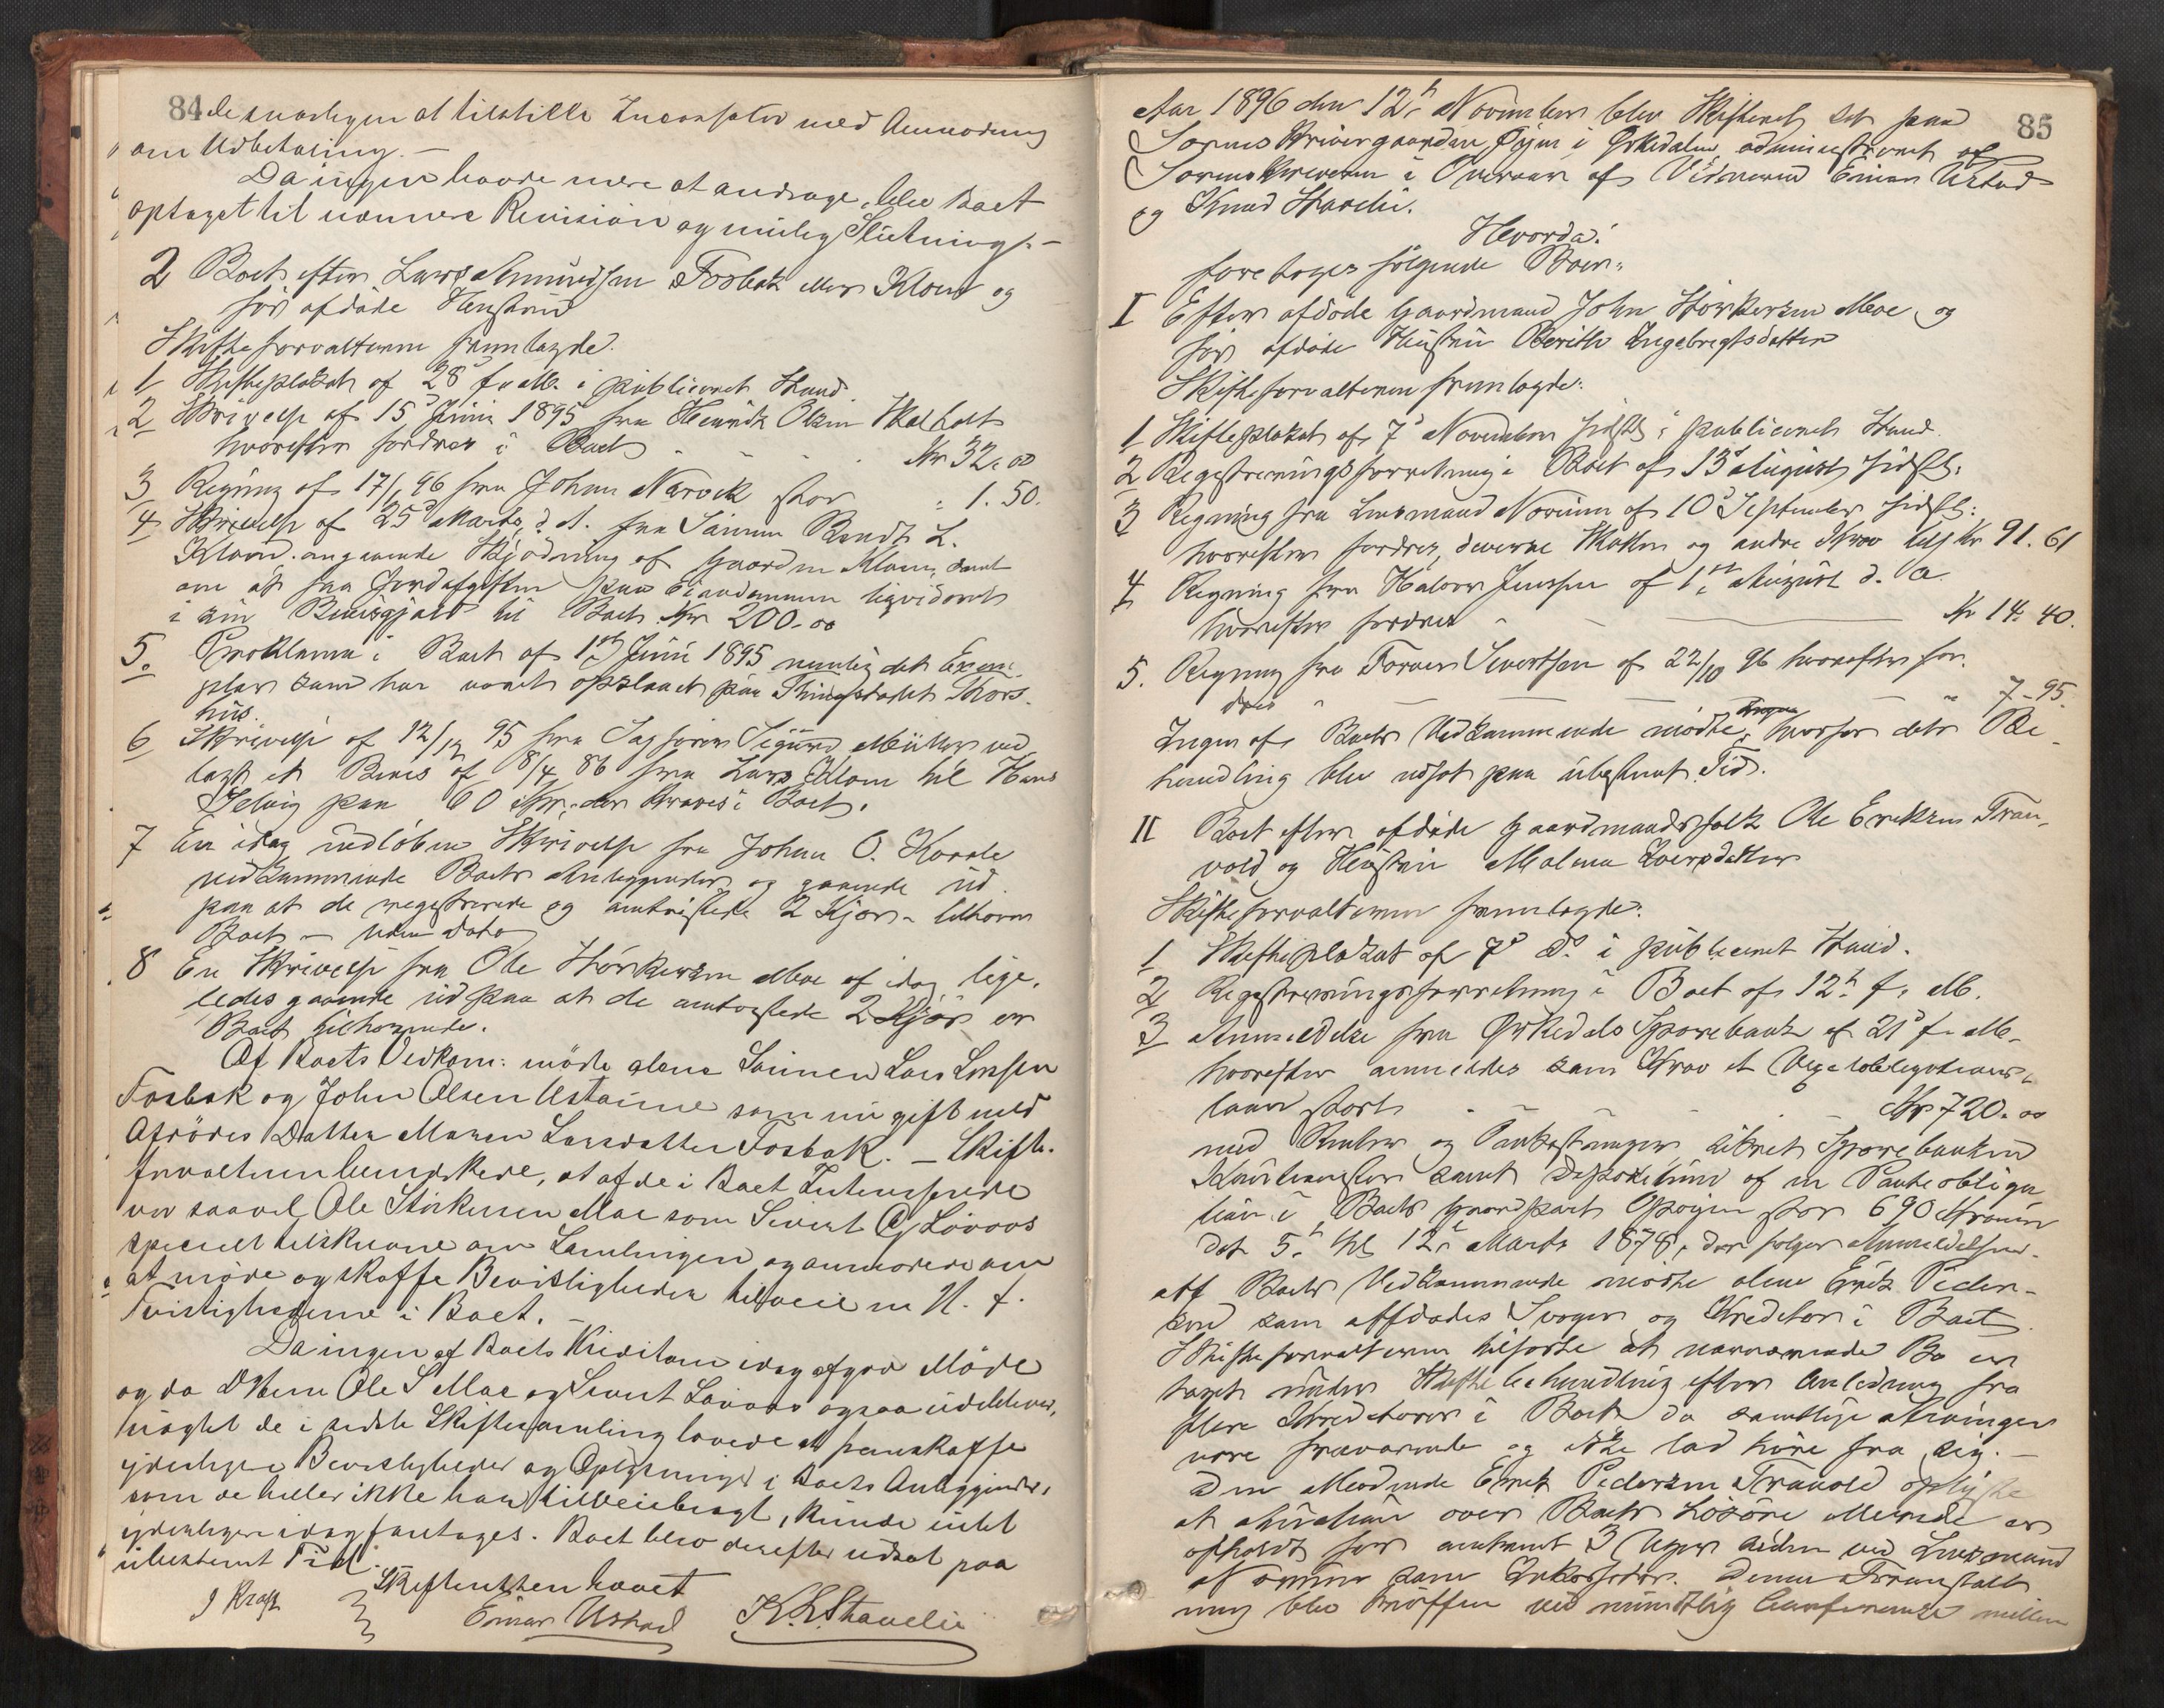 84 de snarligen at tilstille Incassator med Anmodning
om Udbetaling. —
Da ingen havde mere at andrage, blev Boet
optaget til nærmere Revision og mulig Slutning. —
2 Boet efter Lars Amundsen Fosbak eller Klom og
før afdøde Hustru
Skifteforvalteren fremlagde.
1 Skifteplakat af 28d f. M. i publiceret Stand
2 Skrivelse af 15d Juni 1895 fra Henrik Olsen
hvorefter fordres i Boet Kr 32,00
3 Regning af 17/1 96 fra Johan Narvik stor " 1.50.
4 Skrivelse af 25d Marts d. A. fra Sønnen Bendt L.
Klom angaaende Skjødning af Gaarden Klom, samt
om at faa Jordafgiften paa Eiendommen ligvideret
i sin Beviisgjæld til Boet Kr 200.00
5. Proklama i Boet af 1ste Juni 1895 nemlig det Exem-
plar som har været opslaaet paa Thingstedet Skors-
hus.
6 Skrivelse af 12/12 95 fra Sagfører Sigurd Müller ved-
lagt et Bevis af 8/4 86 fra Lars Klom til Hans
Selvig paa 60 Kr, der kraves i Boet.
7 En idag indløben Skrivelse fra Johan O.
vedkommende Boets Anliggender og gaaende ud
paa at de registrerede og omtvistede 2 Kjør tilhører
Boet — uden Dato
8 En Skrivelse fra Ole Størkersen Moe af idag lige-
ledes gaaende ud paa at de omtvistede 2 Kjør er
Boet tilhørende.
Af Boets Vedkom: mødte alene Sønnen Lars Larsen
Fosbak og John Olsen Ustaune som nu gift med
Afdødes Datter Maren Larsdatter Fosbak. — Skifte-
forvalteren bemærkede, at af de i Boet Interesserede
var saavel Ole Størkersen Moe som Sivert O. Løvaas
specielt tilskrevne om Samlingen og anmodede om
at møde og skaffe Bevisligheder tilveie m H. t.
Tvistighederne i Boet. —
Da ingen af Boets Kreditorer idag afgav Møde
og da DHerrer Ole S Moe og Sivert Løvaas ogsaa udebleve,
uagtet de i sidste Skiftesamling lovede at fremskaffe
yderligere Bevisligheder og Oplysninger i Boets Anliggender,
som de heller ikke have tilveiebragt, kunde intet
yderligere idag foretages. Boet blev derefter udsat paa
ubestemt Tid.
Skifteretten hævet
J Kraft Einar Ustad K. Stavelie
85
Aar 1896 den 12te November blev Skifteret sat paa
Sorenskrivergaarden Evjen i Orkedalen administreret af
Sorenskriveren i Overvær af Vidnerne Einar Ustad
og Knud Stavlie.
Hvorda:
foretoges følgende Boer:
I Efter afdøde Gaardmand John Størkersen Moe og
før afdøde Hustru Berith Engebregtsdatter
Skifteforvalteren fremlagde:
1 Skifteplakat af 7d November sidstl. i publiceret Stand.
2 Registreringsforretning i Boet af 13d August sidstl:
3 Regning fra Lensmand Norum af 10d September sidstl:
hvorefter fordres, diverse Skatter og andre Krav tils Kr 91.61
4 Regning fra Halvor Jenssen af 1ste August d. A.
hvorefter fordres — Kr 14.40.
5. Regning fra Sivertsen af 22/10 96 hvorefter for-
dres — " 7-95.
Ingen af Boets Vedkommende mødte, hvorfor dets Be-
handling blev udsat paa ubestemt Tid.
II Boet efter afdøde Gaardmandsfolk Ole Eriksen Tran-
vold og Hustru Malena Iversdatter
Skifteforvalteren fremlagde:
1 Skifteplakat af 7d ds. i publiceret Stand.
2 Registreringsforretning i Boet af 12te f. M.
3 Anmeldelse fra Orkedals Sparebank af 21d f. M.
hvorefter anmeldes som Krav et Vexelobligations-
laan stort — Kr 720.00
med Renter og Omkostninger sikret Sparebanken
Kautionister samt Deposition af en Panteobliga-
tion i Boets Gaardpart stor 690 Kroner
dat 5te tgl 12te Marts 1878, der følger Anmeldelsen.
Af Boets Vedkommende mødte alene Erik Peder-
sen som afdødes Svoger og Kreditor i Boet.
Skifteforvalteren tilførte at nærværende Bo er
taget under Skiftebehandling efter Anledning fra
flere Kreditorer i Boet da samtlige Arvinger
vare fraværende og ikke lod høre fra sig. —
Den Mødende Erik Pedersen Tranvold oplyste
at Auktion over Boets Løsøre allerede er
afholdt for omtrent 3 Uger siden ved Lensmand
Norum som Inkassator. Denne Foranstalt-
ning blev truffen ved mundtlig Conferance mellem